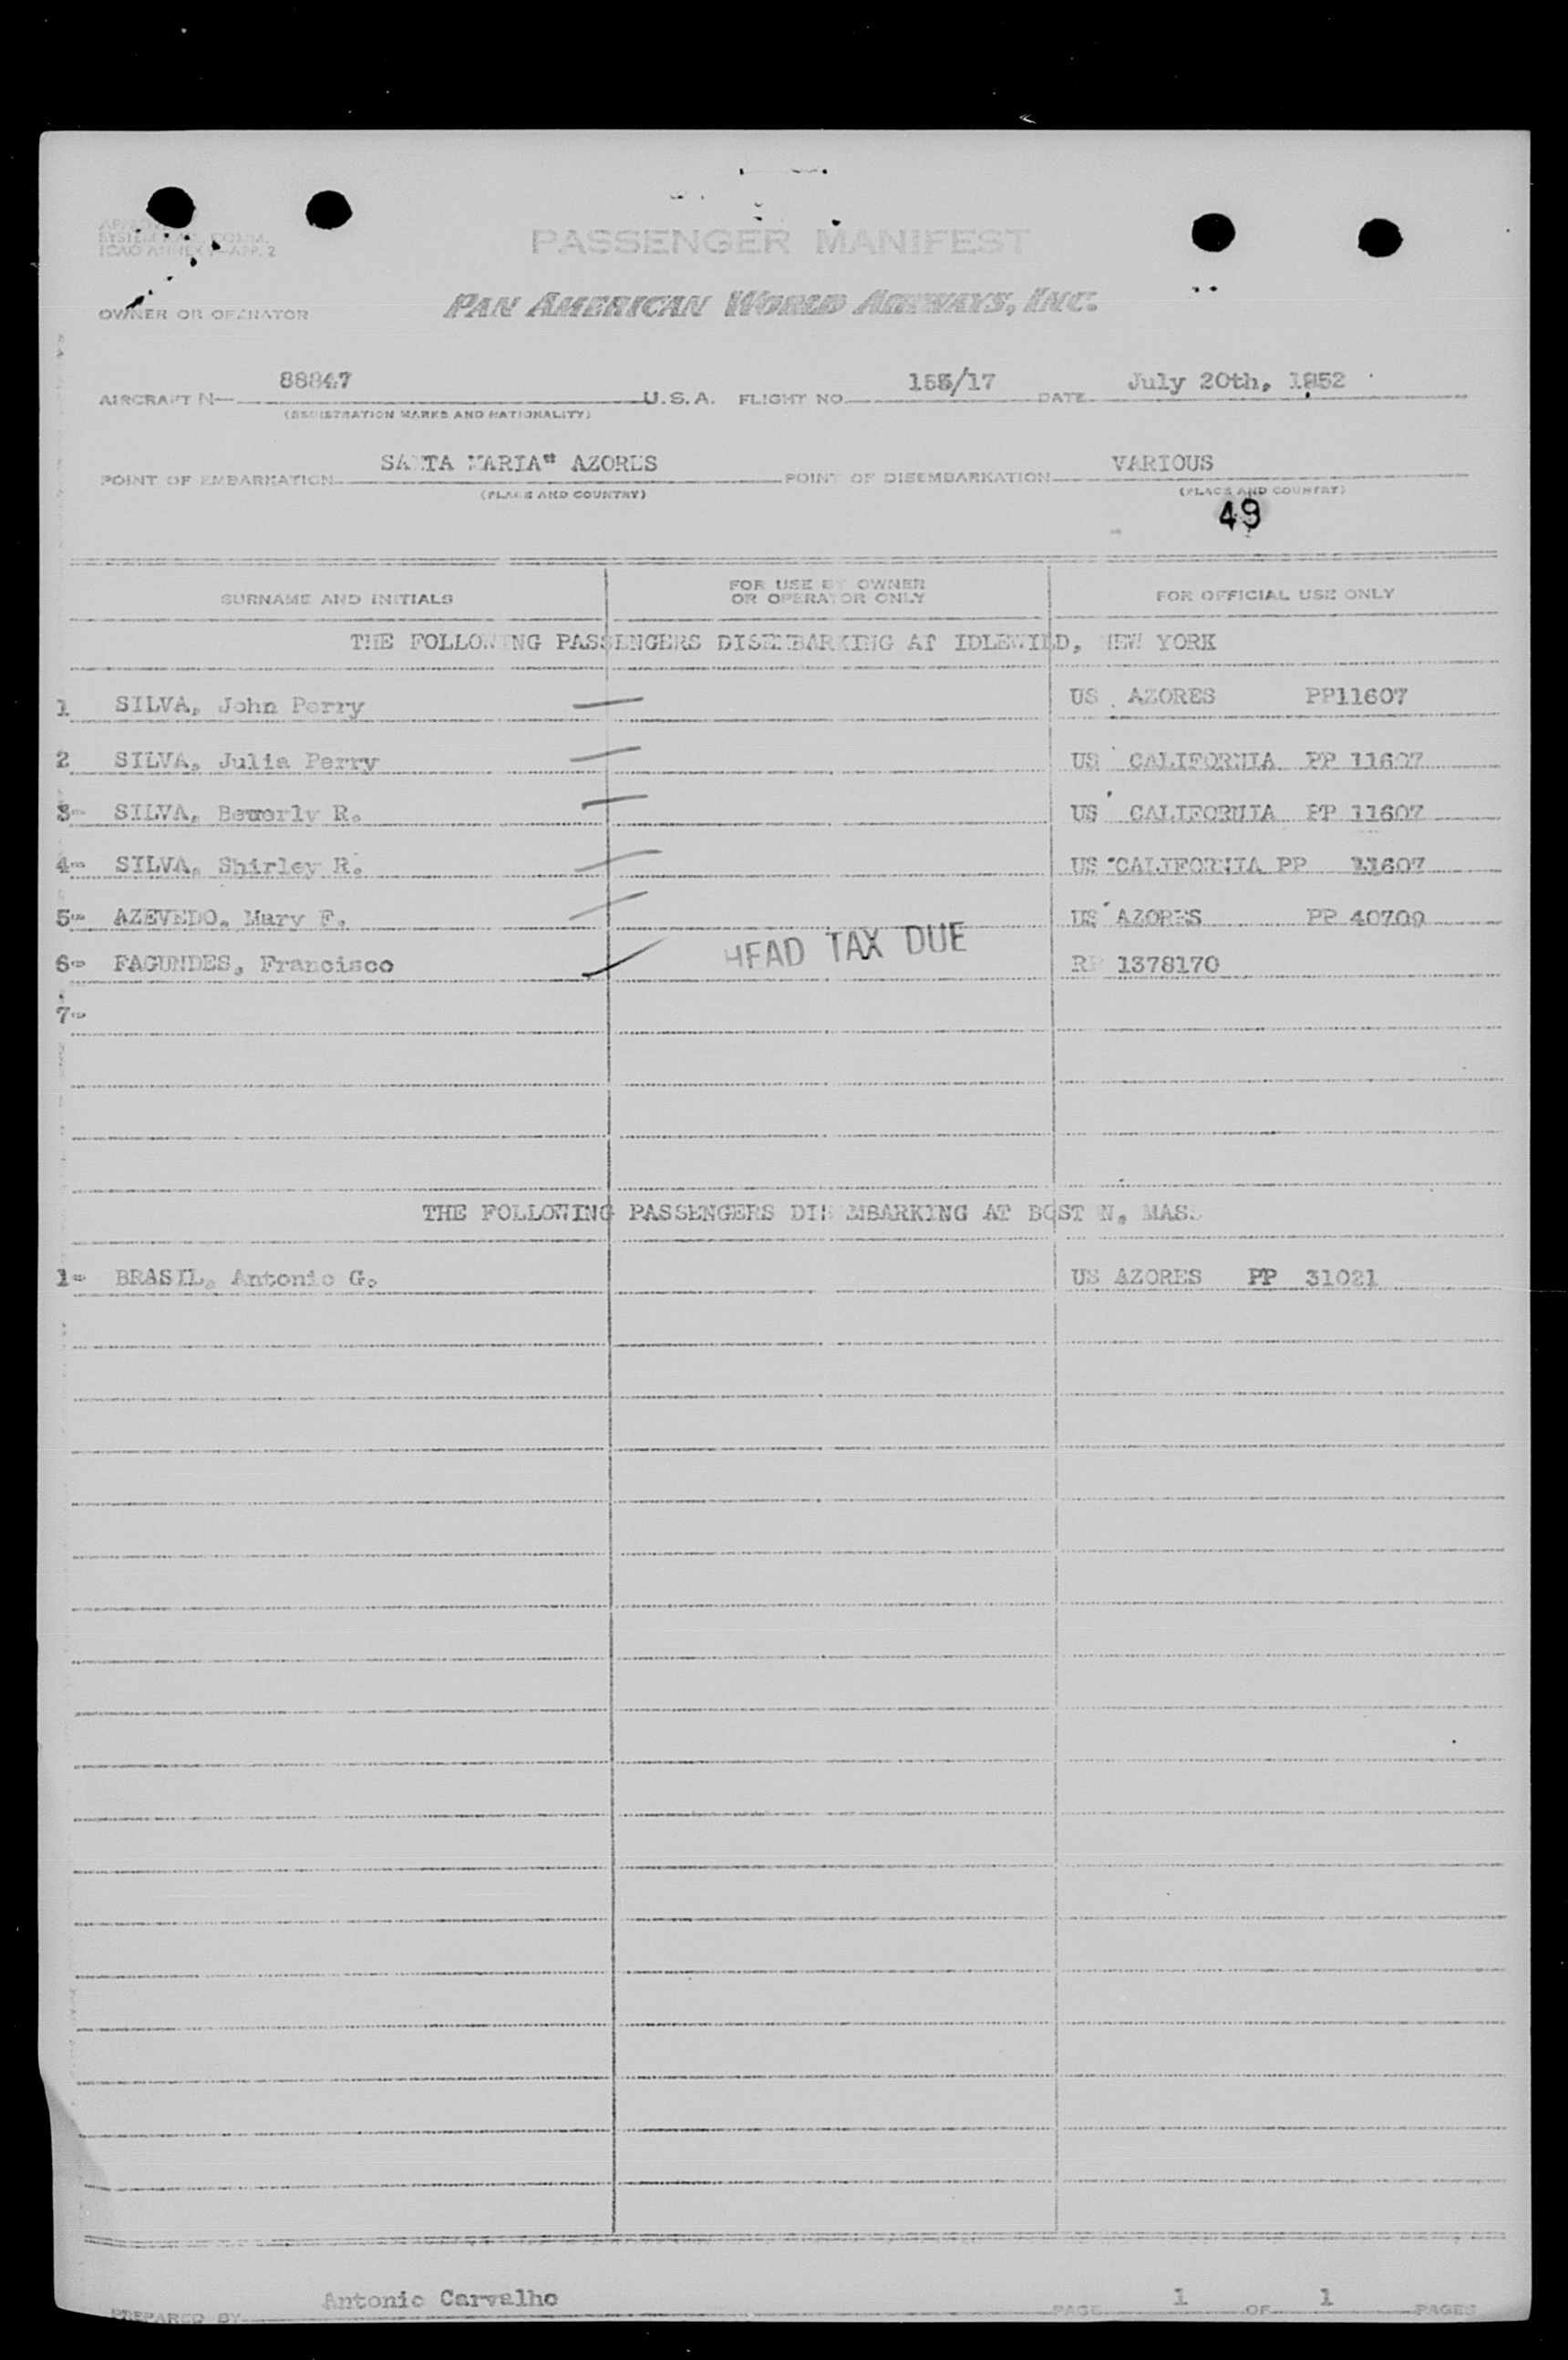 ICAO ANNEX 9—APP. 2
PASSENGER MANIFEST
OWNER OR OPERATOR PAN AMERICAN WORLD AIRWAYS, INC.
AIRCRAFT N— 88847 U.S.A. FLIGHT NO. 155/17 DATE July 20th, 1952
(REGISTRATION MARKS AND NATIONALITY)
POINT OF EMBARKATION SANTA MARIA" AZORES POINT OF DISEMBARKATION VARIOUS
(PLACE AND COUNTRY) (PLACE AND COUNTRY)
49
SURNAME AND INITIALS FOR USE BY OWNER OR OPERATOR ONLY FOR OFFICIAL USE ONLY
THE FOLLOWING PASSENGERS DISEMBARKING AT IDLEWILD, NEW YORK
1 SILVA, John Perry US AZORES PP11607
2 SILVA, Julia Perry US CALIFORNIA PP 11607
3- SILVA, Beverly R. US CALIFORNIA PP 11607
4- SILVA, Shirley R. US CALIFORNIA PP 11607
5- AZEVEDO, Mary F. US AZORES PP 40709
6- FAGUNDES, Francisco HEAD TAX DUE RP 1378170
7-
THE FOLLOWING PASSENGERS DISEMBARKING AT BOSTON, MASS
1- BRASIL, Antonio G. US AZORES PP 31021
PREPARED BY Antonio Carvalho PAGE 1 OF 1 PAGES